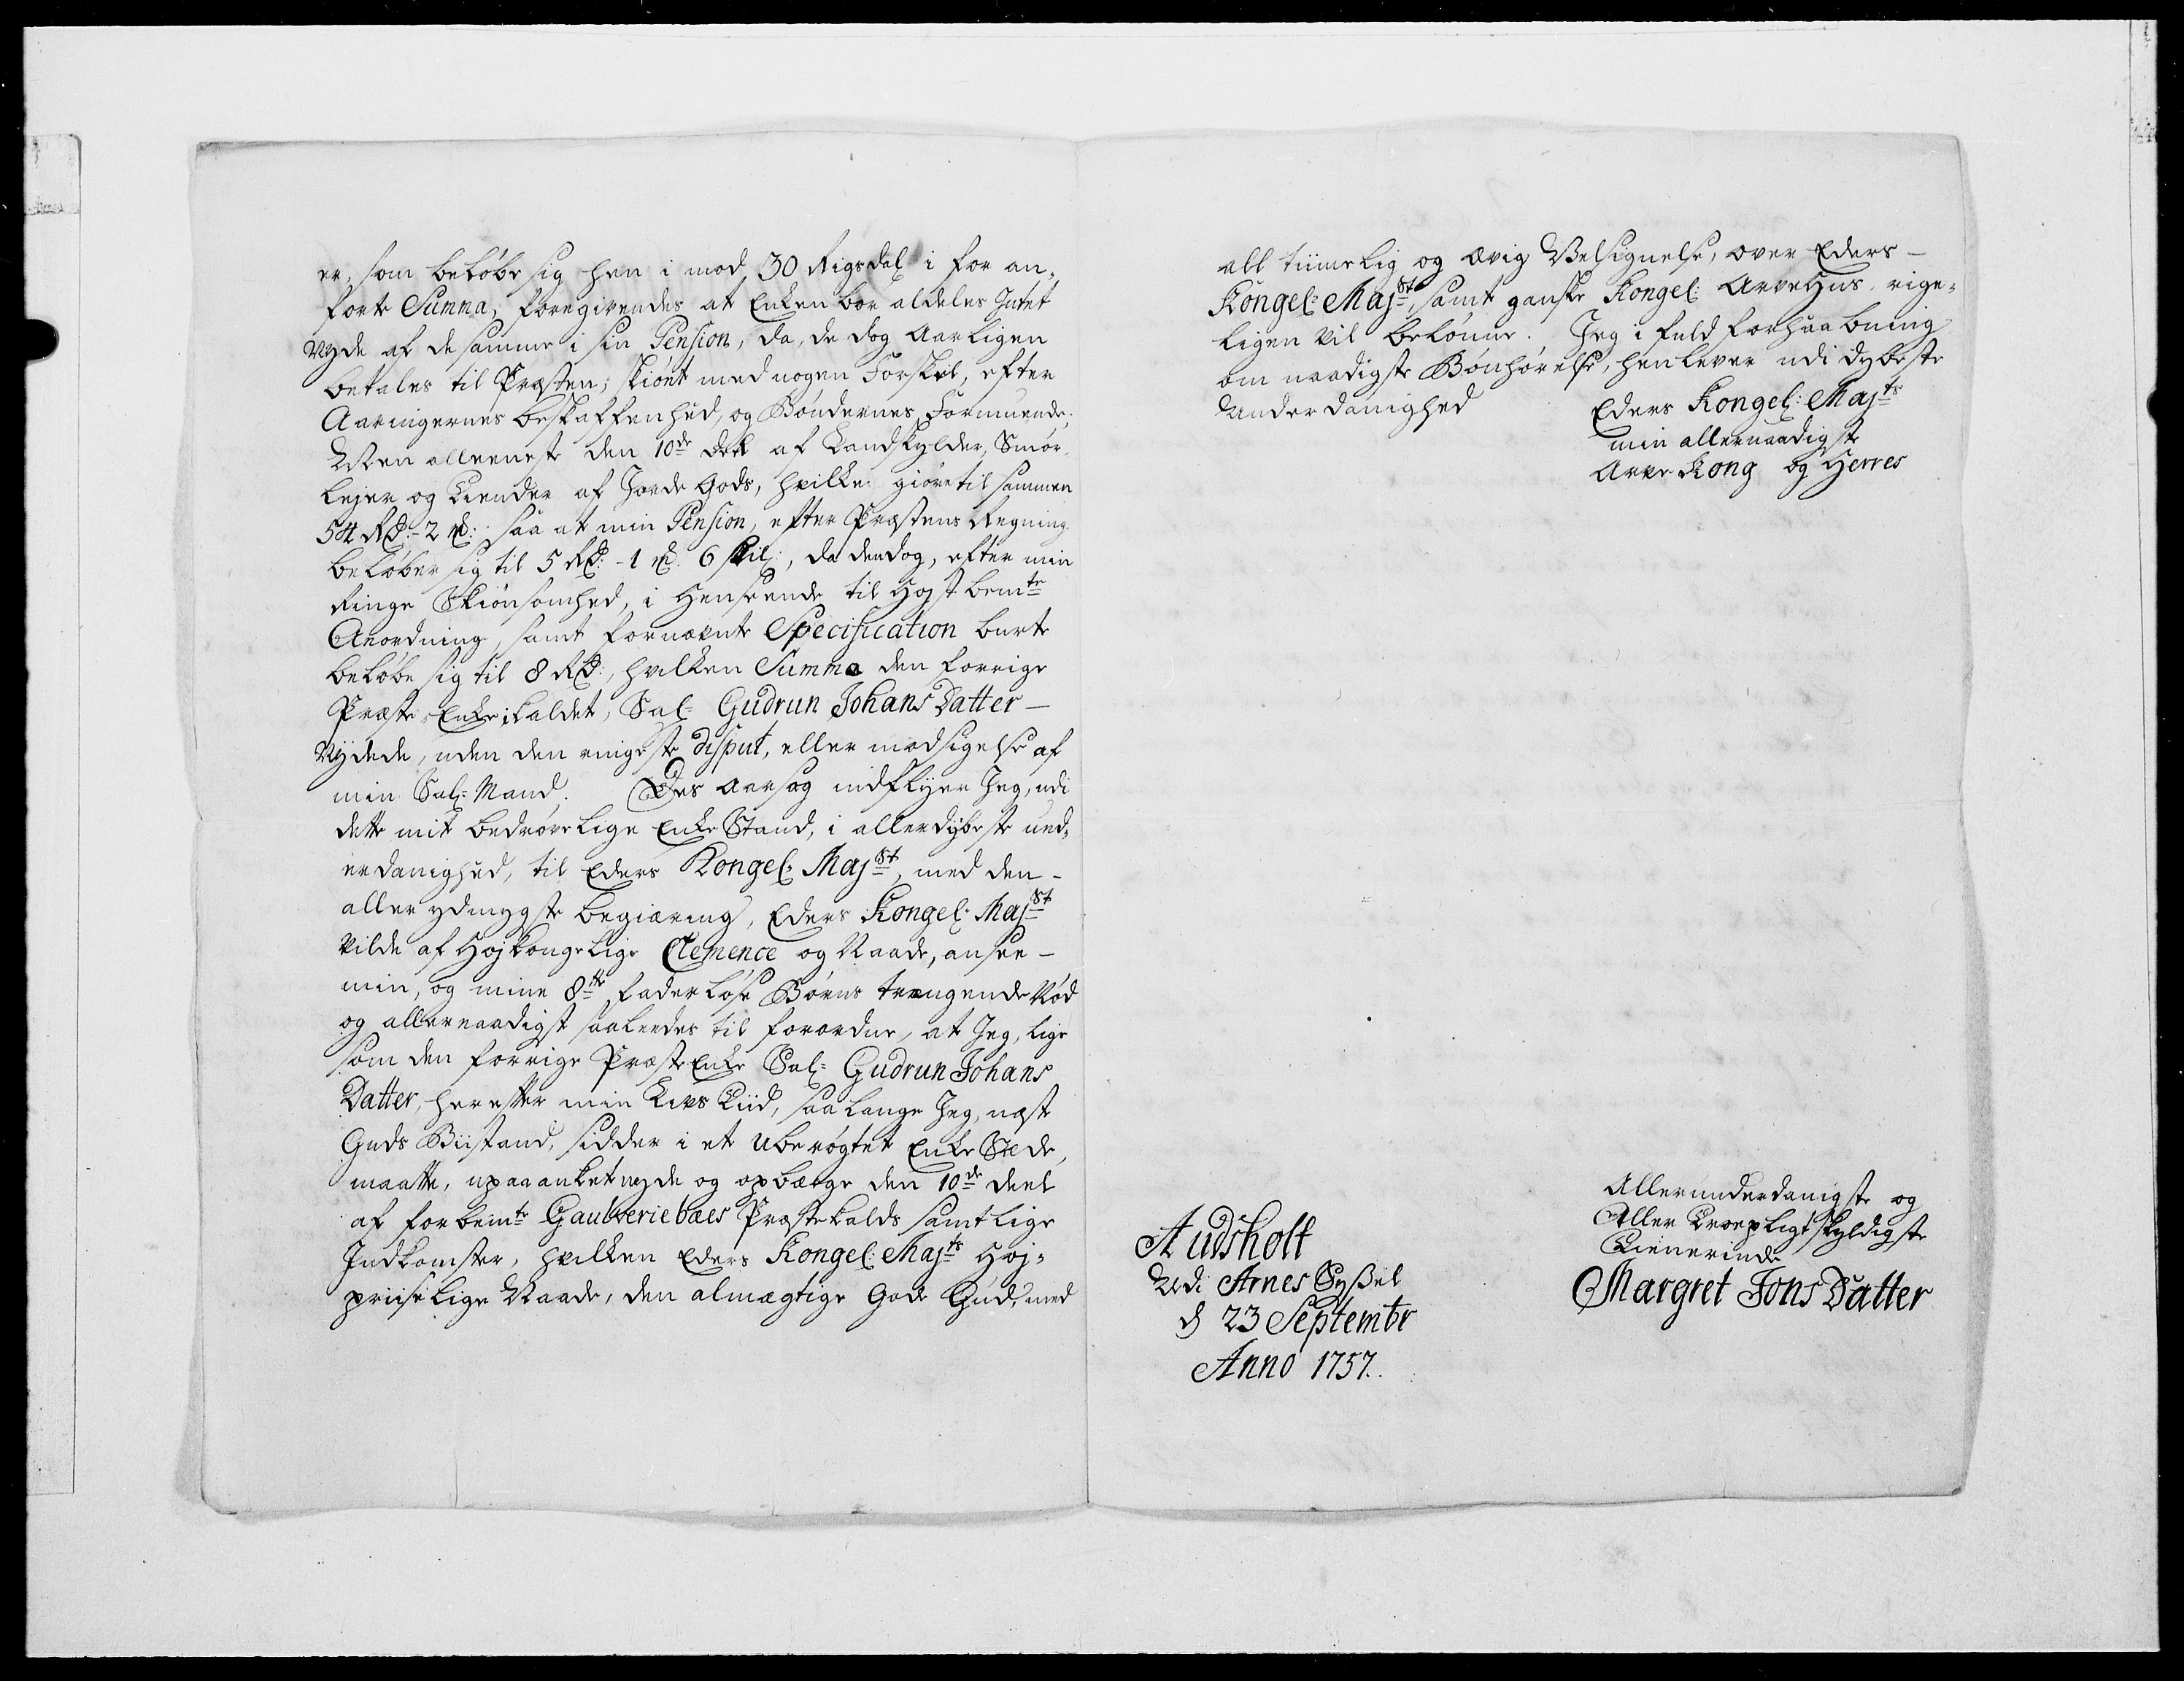 er, som beløbe sig hen i mod 30 Rigsdal i for an-
førte Summa, foregivendes at Enken bør aldeles Intet
Nyde af de samme i sin Pension, da, de dog aarligen
betales til Præsten; skiønt med nogen Forskiel, efter
Aaringernes beskaffenhed, og Bøndernes Formuende;
Men alleeneste den 10de deel af Landskylder, Smør
lejer og Tiender af Jorde Gods, hvilke giøre til sammen
54 Rd: - 2 ℳ: saa at min Pension, efter Præstens Regning
beløber sig til 5 Rd: - 1 ℳ. 6 skil:, da den dog, efter min
Ringe Skiønsomhed, i Henseende til Højst bemte
Anordning, samt fornævnte Specification burte
beløbe sig til 8 Rd:, hvilken Summa den forrige
Præste-Enke i kaldet, Sal: Gudrun Johans Datter -
Nydede, uden den ringeste disput, eller modsigelse af
min Sal: Mand. Des aarsag indflyer Jeg, udi
dette mit bedrøvelige Enke Stand, i allerdybeste und-
erdanighed, til Eders Kongel: Majst, med den -
aller ydmygste begiæring, Eders Kongel: Majst
vilde af Højkongelige Clemence og Naade, ansee -
min, og mine 8te faderløse Børns trængende Nød
og allernaadigst saaleedes til forordne, at Jeg, lige
som den forrige Præste Enke Sal: Gudrun Johans
Datter, herefter min Livs Tiid, saa lange Jeg, næst
Guds Biistand, sidder i et uberøgtet Enke Sæde,
maatte, upaaanket nyde og opbærge den 10de deel
af forbemte Gaulveriebæes Præstekalds samtlige
Indkomster, hvilken Eders Kongel: Majts Høj-
priiselige Naade, den almægtige Gode Gud, med
all tiimelig og ævig Velsignelse, over Eders -
Kongel: Majst, samt ganske Kongel: Arvehus, rige-
ligen vil belønne. Jeg i fuld forhaabning
om naadigste Bønhørelse, henlever udi dybeste
Underdanighed
Eders Kongel: Majts
min allernaadigste
Arve Kong og Herres
Audsholt
Udi Arnes Syßel
d 23 Septembr
Anno 1757.
Allerunderdanigste og
Aller Troepligtskyldigste
Tienerinde
Margret Jons Datter